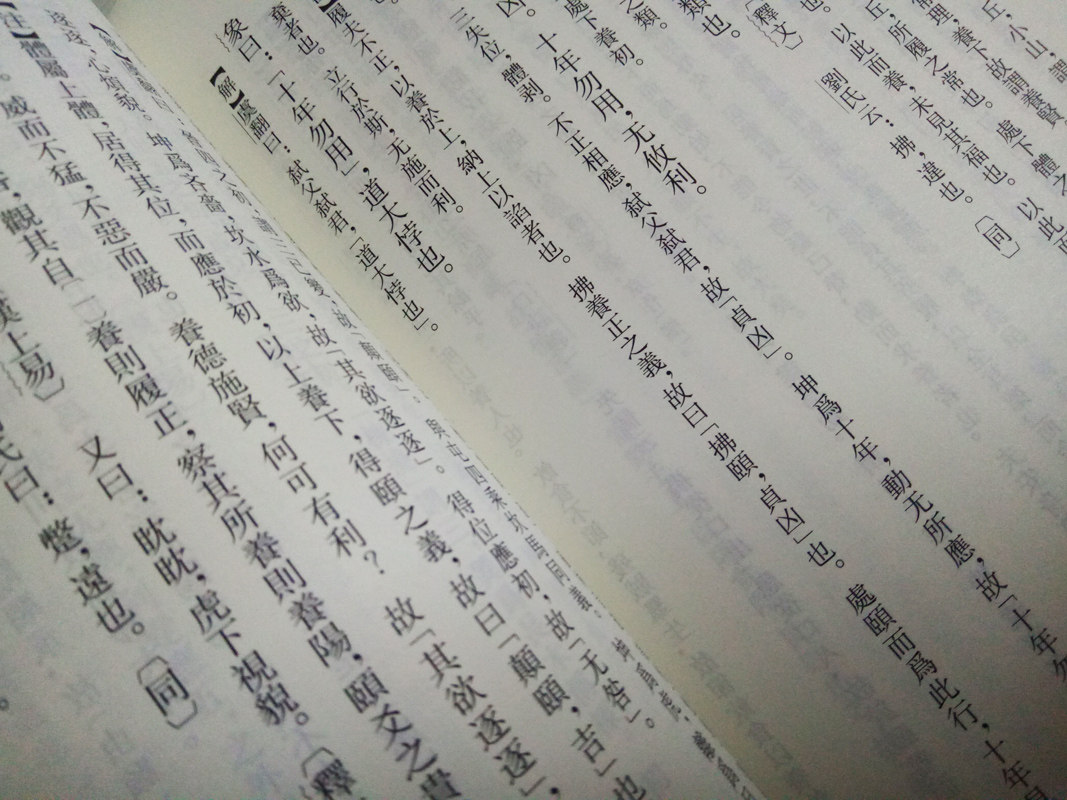 丘，小山，謂
常理，養下故謂養賢
丘，所履之常也。 處下體之
以此而養，未見其福也。 以此而
〔釋文〕 劉氏云：拂，違也。 〔同〕
類也。
之類。
處下養初。
凶。 十年勿用，无攸利。
三失位，體剥。 不正相應，弑父弑君，故「貞凶」。 坤爲十年，動无所應，故「十年勿
履夫不正，以養於上，納上以諂者也。 拂養正之義，故曰「拂頤，貞凶」也。 處頤而爲此行，十年見
棄者也。 立行於斯，无施而利。
象曰：「十年勿用」，道大悖也。
【解】虞翻曰：弑父弑君，「道大悖也」。
坤爲吝嗇，坎水爲欲，故「其欲逐逐」。 得位應初，故「无咎」。
逐逐，心煩貌。
【注】體屬上體，居得其位，而應於初，以上養下，得頤之義，故曰「顛頤，吉」也
威而不猛，不惡而嚴。 養德施賢，何可有利？ 故「其欲逐逐」，
觀其自養則履正，察其所養則養陽，頤爻之貴
又曰：眈眈，虎下視貌。〔釋
氏曰：蹩，遠也。〔同〕